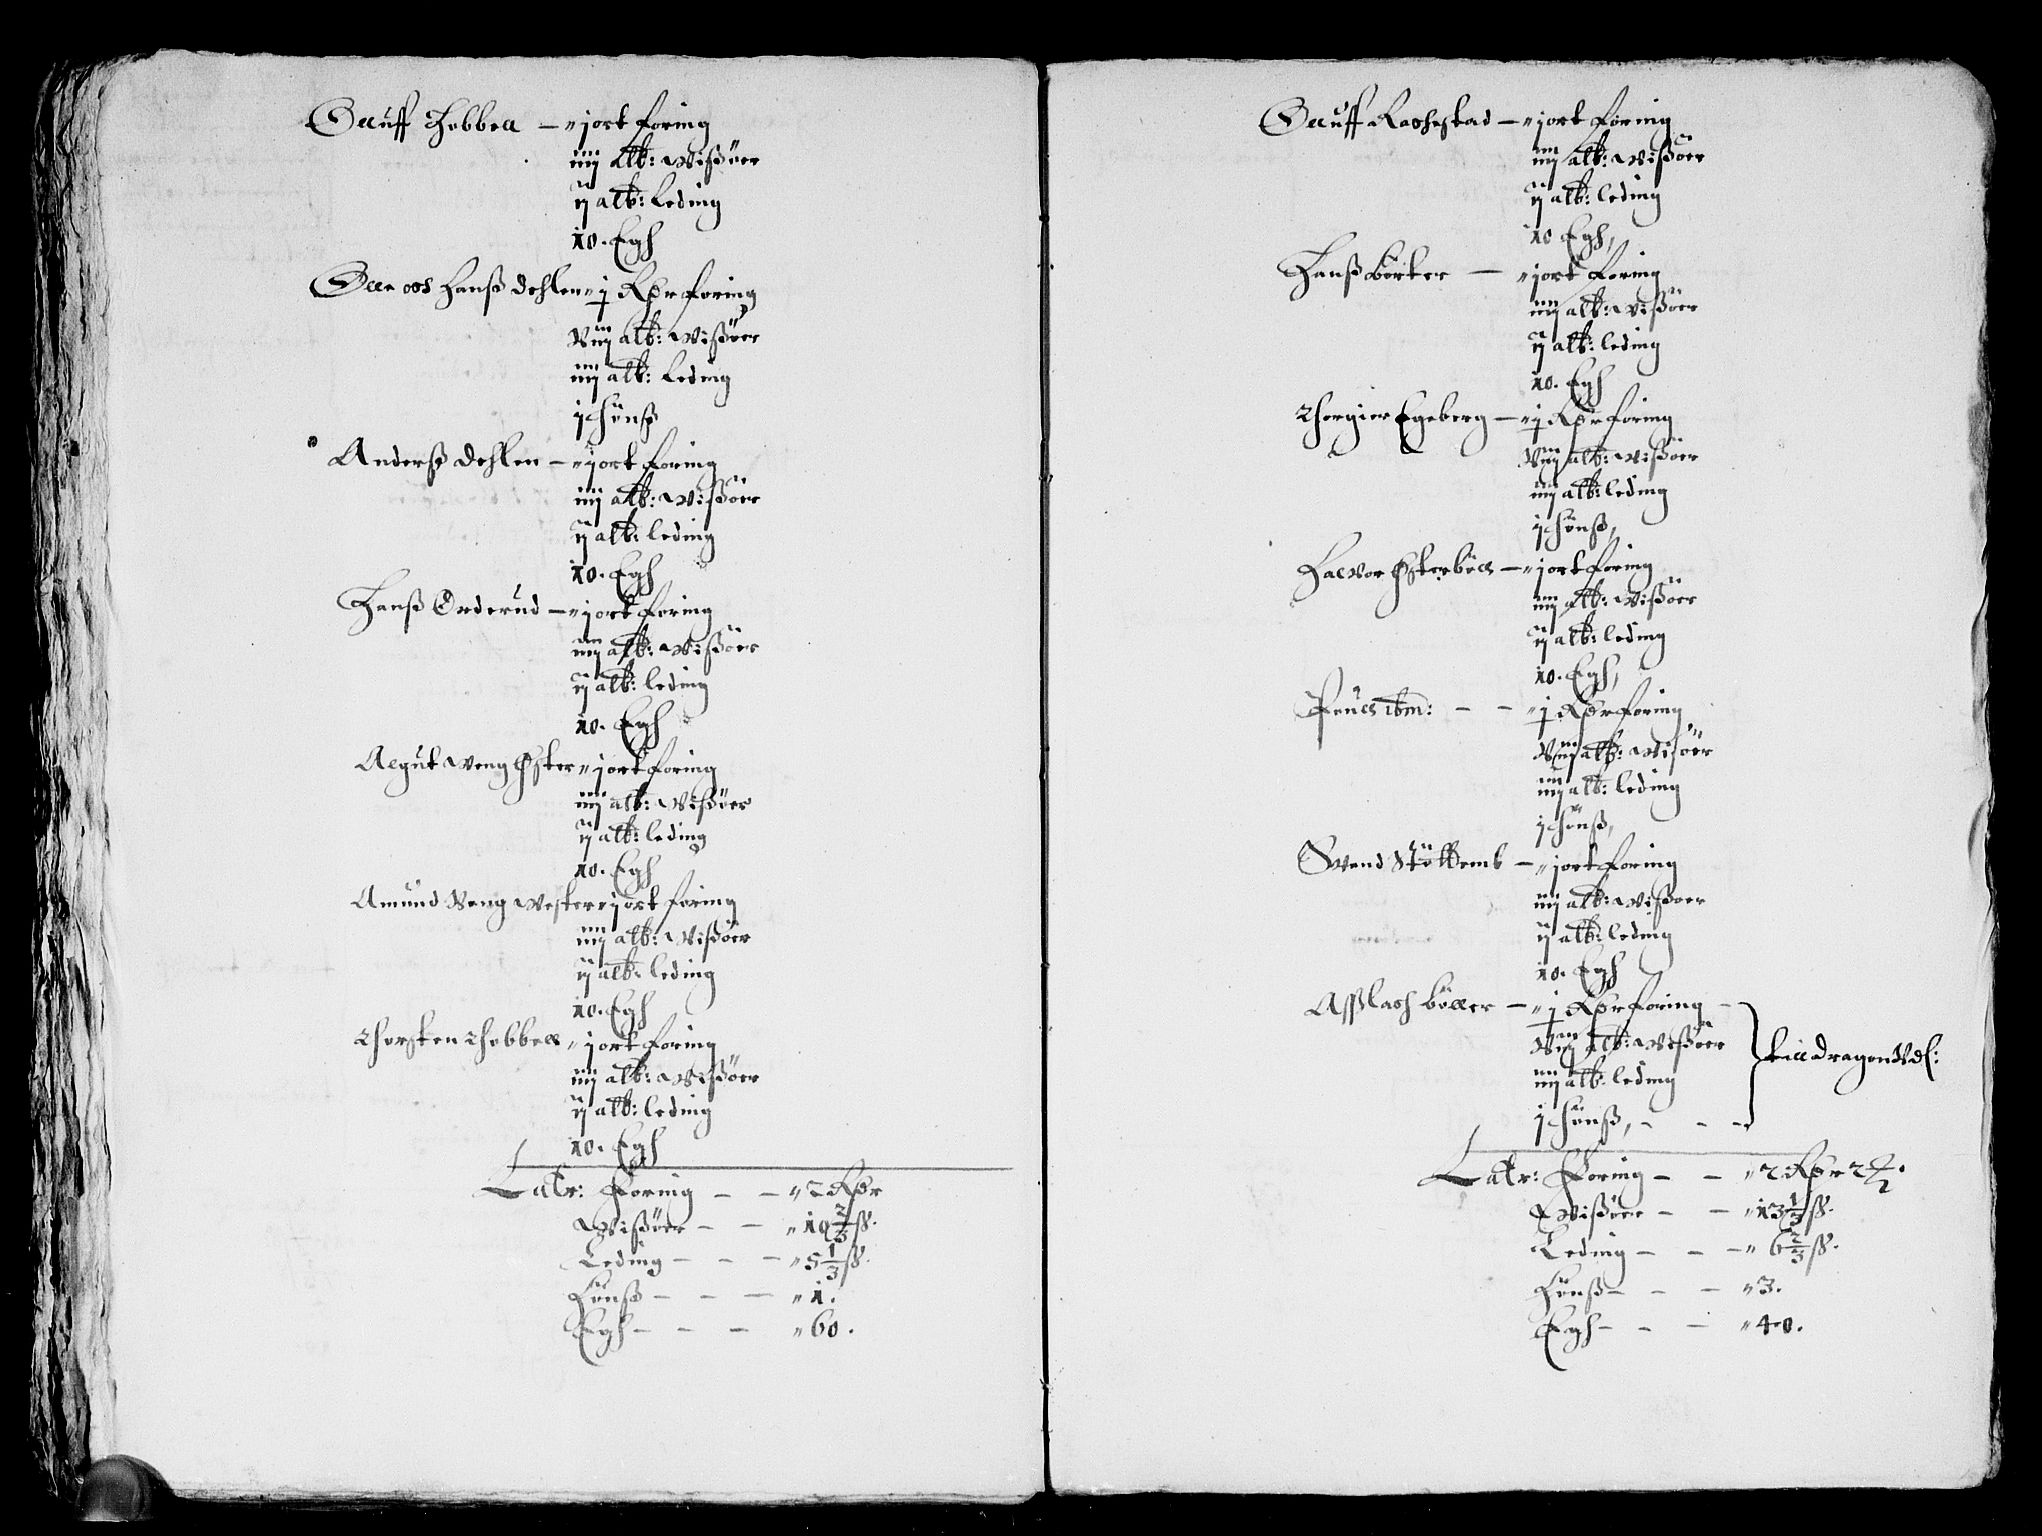 Oluff Hobbell — „ j ort foring
iiij alb: Wißöer
ij alb: Leding
10. Egh
Ole och Hanß Dehlen „ j Rdr foring
Viij alb: Wißöer
iiij alb: Leding
j Hönß
Anderß Dehlen — „ j ort foring
iiij alb: Wißöer
ij alb: leding
10. Egh
Hanß Orderud — „ j ort foring
iiij alb: Wißöer
ij alb: leding
10. Egh
Algut Weng Øster „ j ort foring
iiij alb: Wißöer
ij alb: leding
10. Egh
Amund Weng Wester „ j ort foring
iiij alb: Wißöer
ij alb: leding
10. Egh
Thorsten Thobbell „ j ort foring
iiij alb: Wißöer
ij alb: leding
10. Egh
Latr: Foring — — „ 2 Rdr
Wißöer — — „ 10 2/3 ß.
Leding — — — „ 5 1/3 ß.
Hönß — — — „ 1.
Egh — — — „ 60.
Oluff Rachestad — „ j ort foring
iiij alb: Wißöer
ij alb: leding
10 Egh,
Hanß Börter — „ j ort foring
iiij alb: Wißöer
ij alb: leding
10. Egh
Thorgier Egeberg — „ j Rdr foring
Viij alb: Wißöer
iiij alb: leding
j Hönß,
Halvor Østerböll — „ j ort foring
iiij alb: Wißöer
ij alb: leding
10. Egh,
Pouel ibm: — — „ j Rdr foring
Viij alb: Wißöer
iiij alb: leding
j Hönß,
Svend — „ j ort foring
iiij alb: Wißöer
ij alb: leding
10. Egh
Asslach Böller — „ j Rdr foring —
Viij alb: Wißöer
till dragon Udl:
iiij alb: leding
j Hönß, — — —
Latr: Foring — — „ 2 Rdr 2
Wißöer — — „ 13 1/3 ß.
Leding — — — „ 6 2/3 ß.
Hönß — — — „ 3.
Egh — — — „ 40.